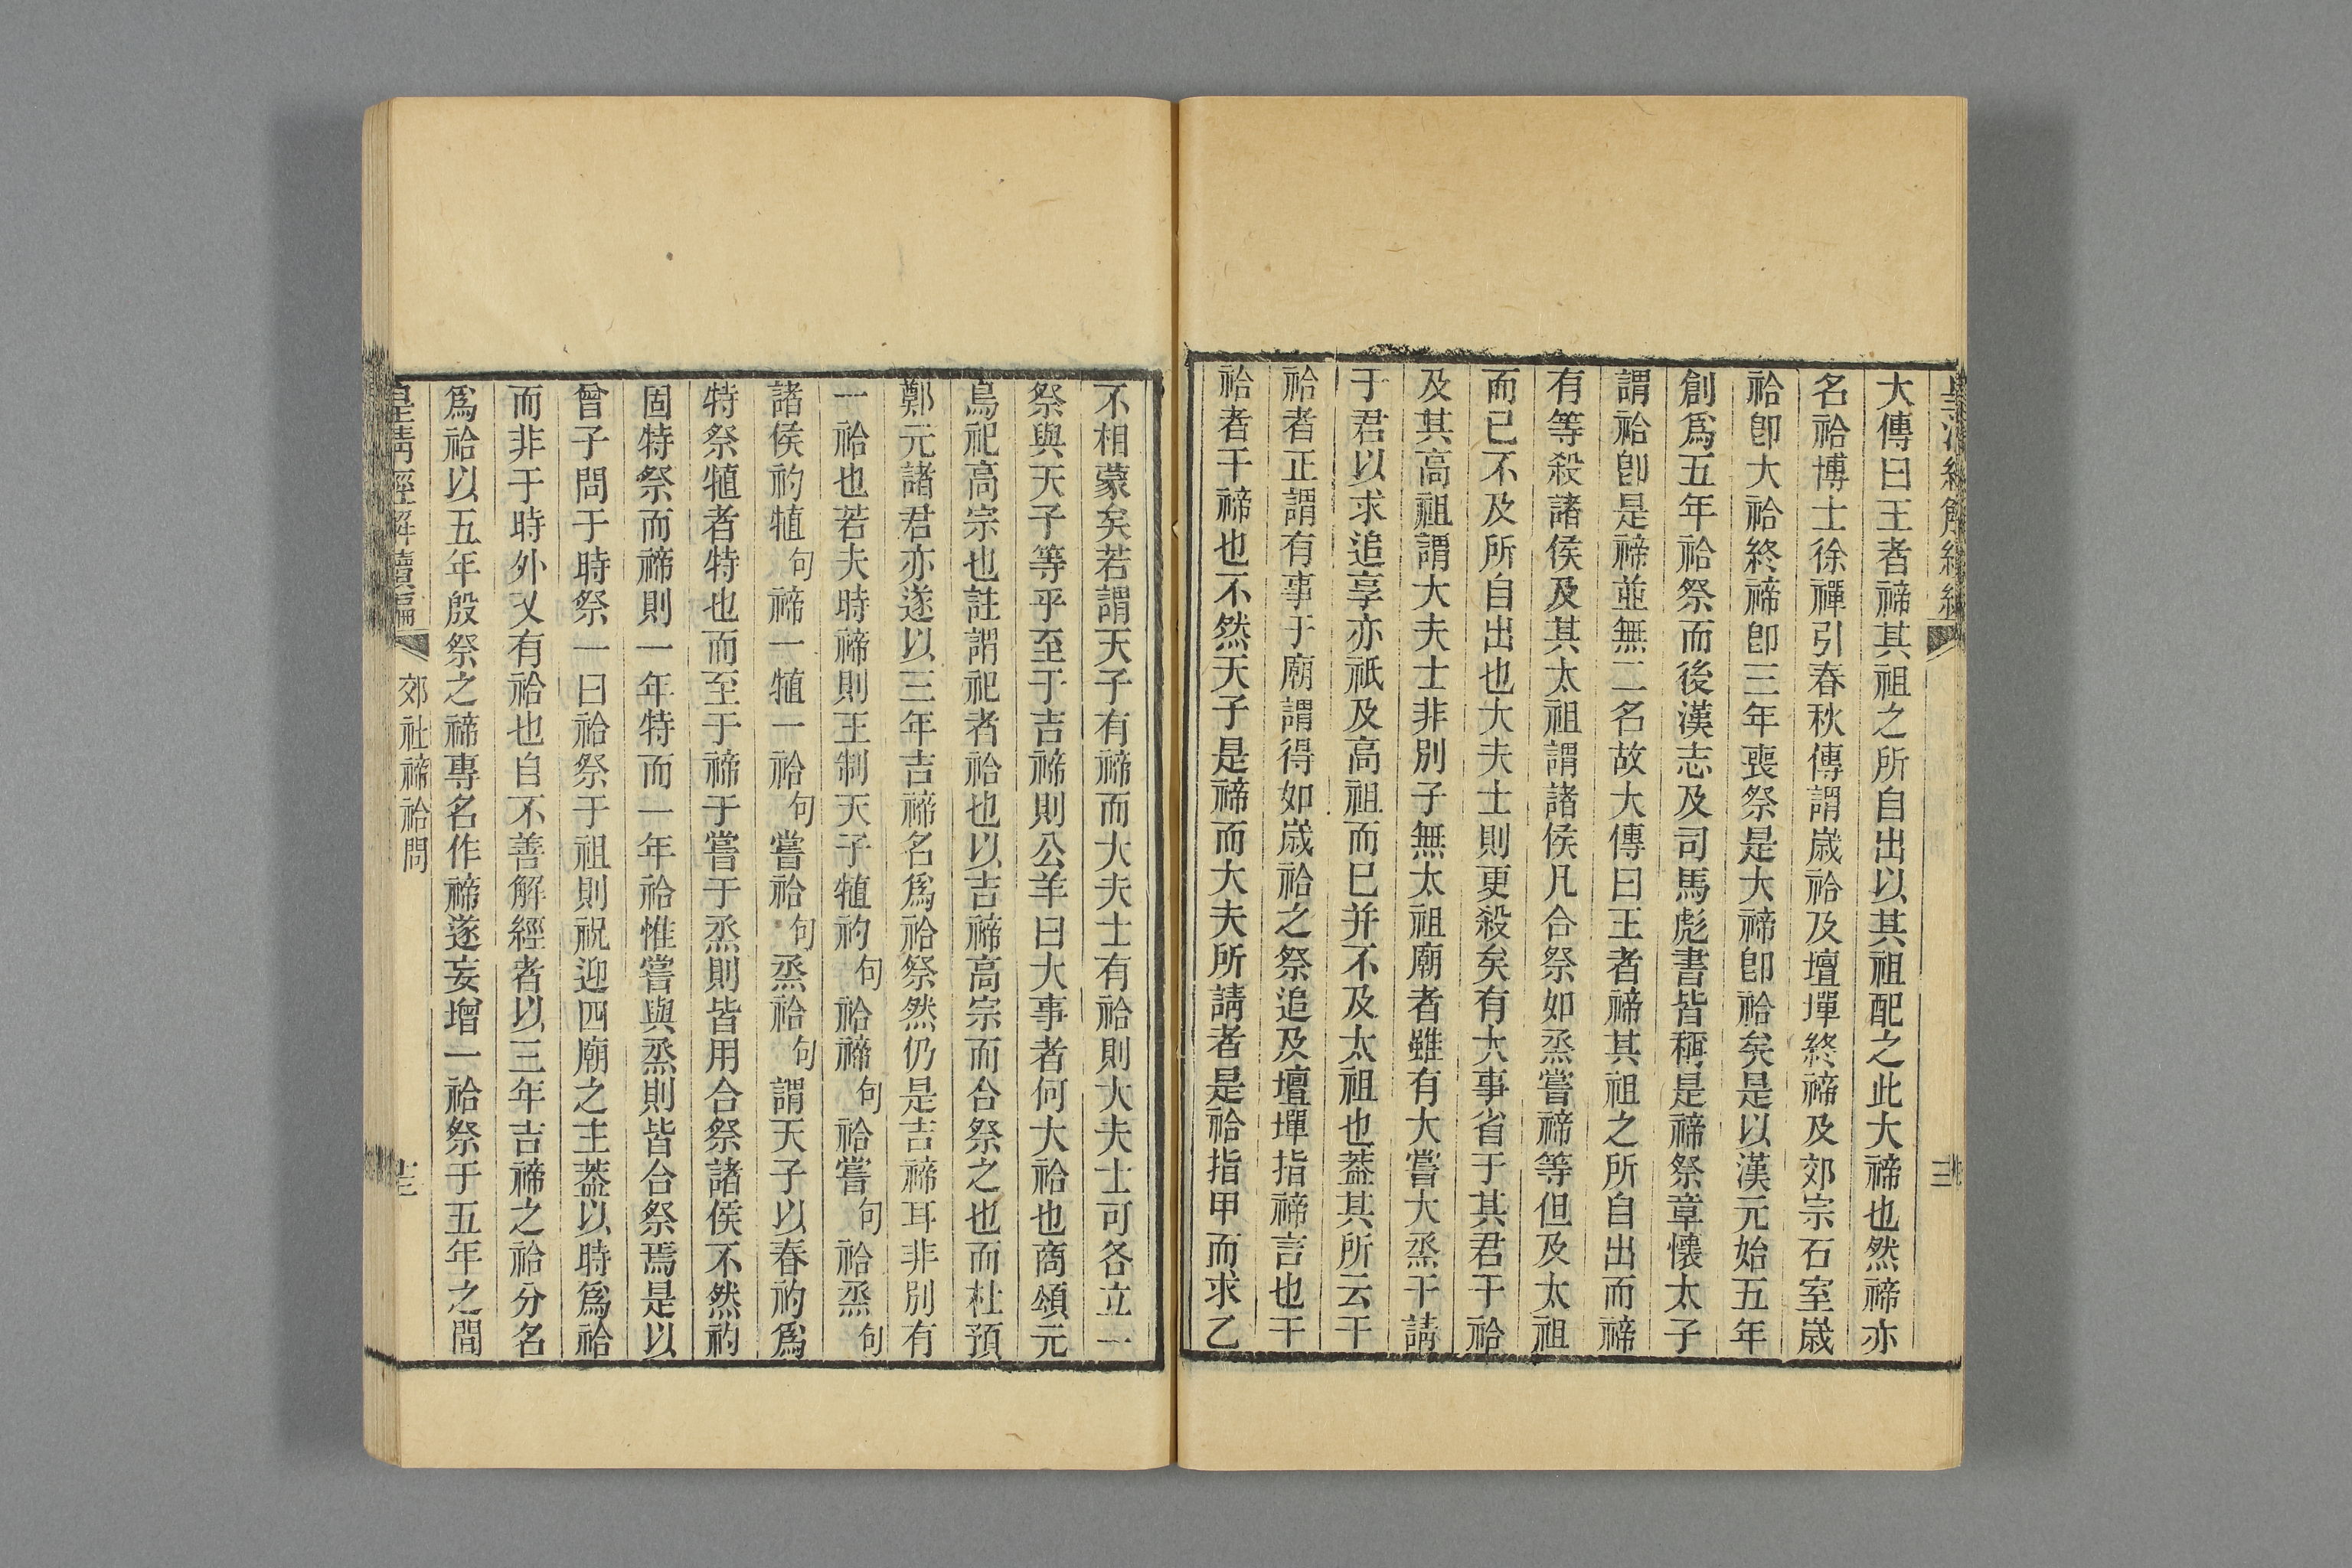 大傳曰王者禘其祖之所自出以其祖配之此大禘也然禘亦
名祫博士徐禪引春秋傳謂歲祫及壇墠終禘及郊宗石室歲
祫卽大祫終禘卽三年喪祭是大禘卽祫矣是以漢元始五年
創爲五年祫祭而後漢志及司馬彪書皆稱是禘祭章懷太子
謂祫卽是禘並無二名故大傳曰王者禘其祖之所自出而禘
有等殺諸侯及其太祖謂諸侯凡合祭如烝嘗禘等但及太祖
而已不及所自出也大夫士則更殺矣有大事省于其君干祫
及其高祖謂大夫士非別子無太祖廟者雖有大嘗大烝干請
于君以求追享亦祇及高祖而已并不及太祖也葢其所云干
祫者正謂有事于廟謂得如歲祫之祭追及壇墠指禘言也干
祫者干禘也不然天子是禘而大夫所請者是祫指甲而求乙
不相蒙矣若謂天子有禘而大夫士有祫則大夫士可各立一
祭與天子等乎至于吉禘則公羊曰大事者何大祫也商頌元
鳥祀高宗也註謂祀者祫也以吉禘高宗而合祭之也而杜預
鄭元諸君亦遂以三年吉禘名爲祫祭然仍是吉禘耳非別有
一祫也若夫時禘則王制天子犆礿句祫禘句祫嘗句祫烝句
諸侯礿犆句禘一犆一祫句嘗祫句烝祫句謂天子以春礿爲
特祭犆者特也而至于禘于嘗于烝則皆用合祭諸侯不然礿
固特祭而禘則一年特而一年祫惟嘗與烝則皆合祭焉是以
曾子問于時祭一曰祫祭于祖則祝迎四廟之主葢以時爲祫
而非于時外又有祫也自不善解經者以三年吉禘之祫分名
爲祫以五年殷祭之禘專名作禘遂妄增一祫祭于五年之間
皇淸經解續編 郊社禘祫問